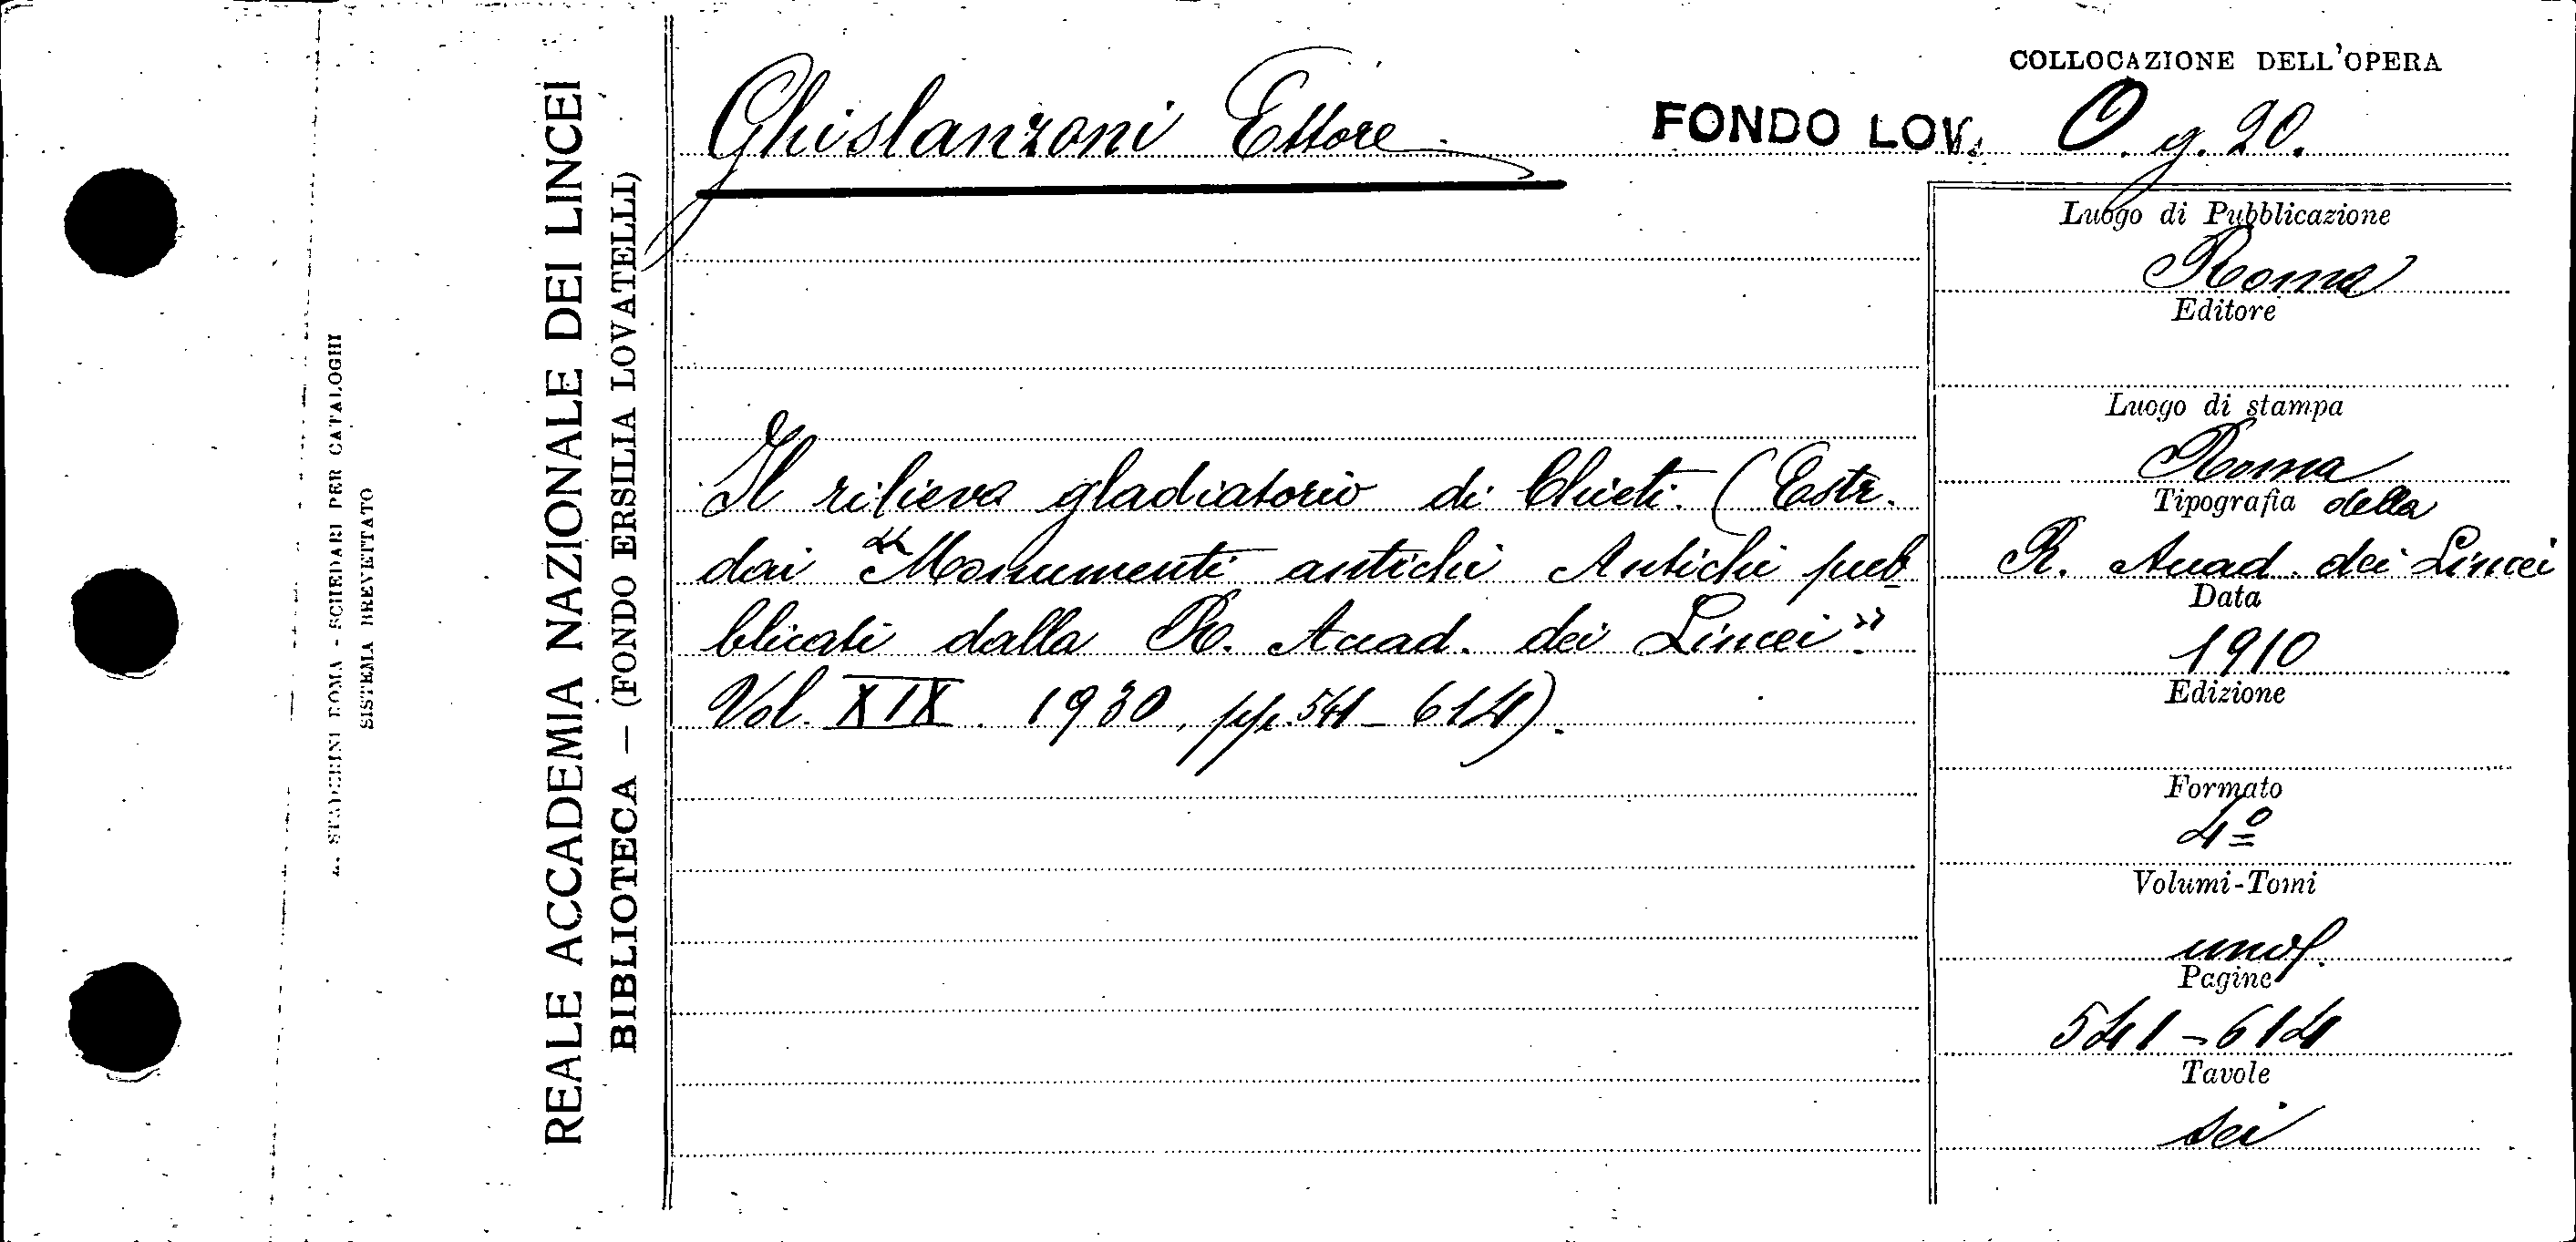 COLLOCAZIONE DELL'OPERA
Ghislanzoni Ettore
FONDO LOV. O. g. 20.
Il rilievo gladiatorio di Chieti. (Estr.
dai "Monumenti antichi Antichi pub
blicati dalla R. Accad. dei Lincei".
Vol. XIX. 1930, pp. 541-614).
Luogo di Pubblicazione
Roma
Editore
Luogo di stampa
Roma
Tipografia della
R. Accad. dei Lincei
Data
1910
Edizione
Formato
4º
Volumi-Tomi
uno.
Pagine
541-614
Tavole
sei
REALE ACCADEMIA NAZIONALE DEI LINCEI
BIBLIOTECA — (FONDO ERSILIA LOVATELLI)
STADERINI ROMA - SCHEDARI PER CATALOGHI
SISTEMA BREVETTATO